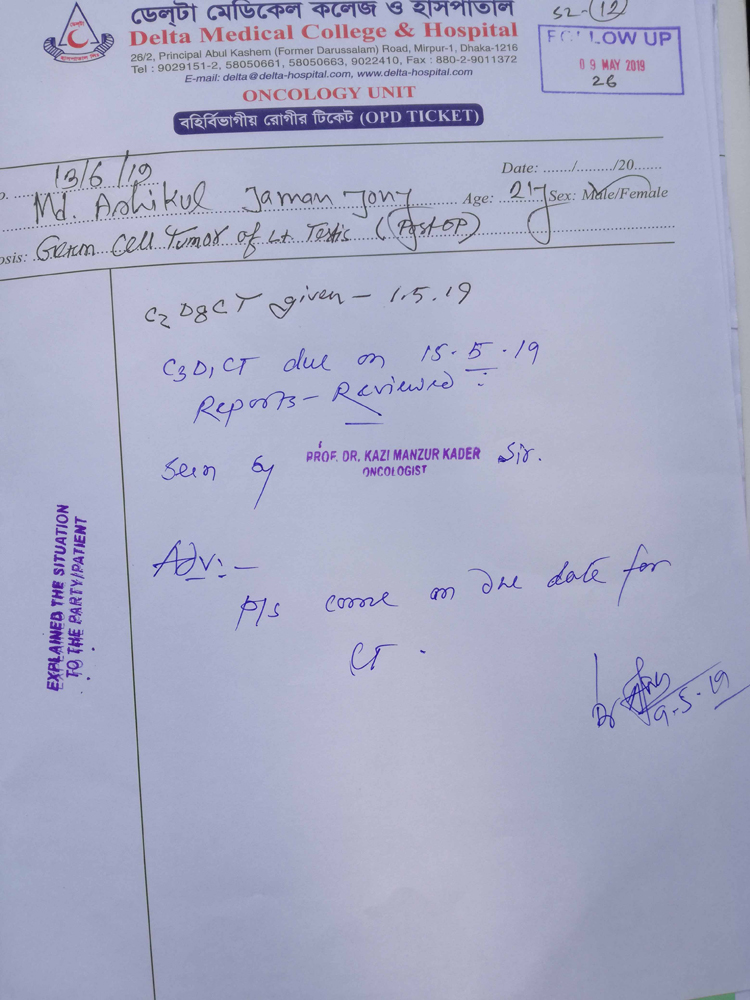 ডেল্টা মেডিকেল কলেজ ও হাসপাতাল
Delta Medical College & Hospital
26/2, Principal Abul Kashem (Former Darussalam) Road, Mirpur-1, Dhaka-1216
Tel : 9029151-2, 58050661, 58050663, 9022410, Fax : 880-2-9011372
E-mail: delta@delta-hospital.com, www.delta-hospital.com
ONCOLOGY UNIT
বহির্বিভাগীয় রোগীর টিকেট (OPD TICKET)
52-(12)
FOLLOW UP
09 MAY 2019
26
13/6/19
Date: ....../........./20.......
Md. Ashikul Jaman Jony Age: 21y Sex: Male/Female
osis: Germ cell Tumor of Lt Testis (Post OP)
C2 D8 CT given - 1.5.19
C3D1 CT due on 15.5.19
Reports - Reviewed
Seen by PROF. DR. KAZI MANZUR KADER Sir.
ONCOLOGIST
EXPLAINED THE SITUATION
TO THE PARTY/PATIENT
Adv:-
Pls come on due date for
CT.
Dr
9-5-19